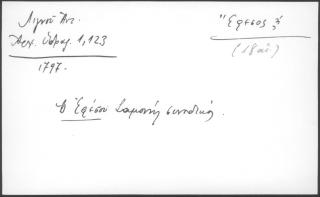 Λιγνοῦ Ἀντ.
Ἀρχ. Ὕδρας 1, 123
1797.
"Ἔφεσος
(18 αἰ.)
Ὁ Ἐφέσου Σαμουὴλ συνοδικός.